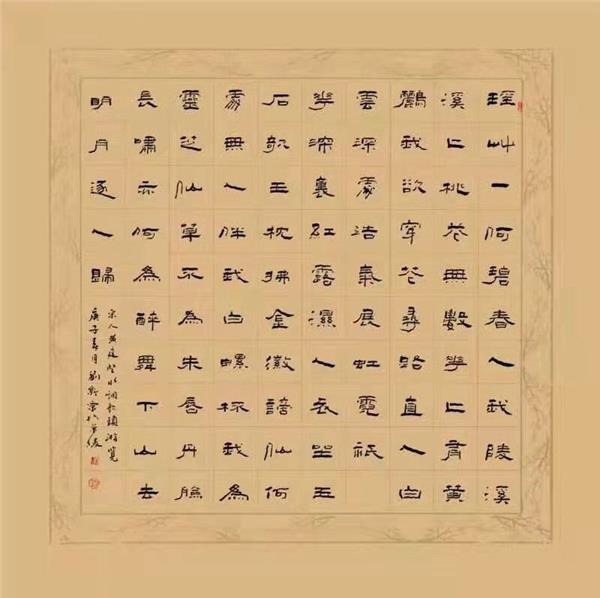 瑤艸一何碧春入武陵溪
溪上桃花無數華上有黃
鸝我欲穿花尋路直入白
雲深處浩氣展虹霓祇
華深裏紅露濕人衣坐玉
石欹玉枕拂金徽謫仙何
處無人伴我白螺杯我為
靈芝仙草不為朱唇丹臉
長嘯亦何為醉舞下山去
明月逐人歸
宋人黃庭堅水調歌頭游覽
庚子春月劉